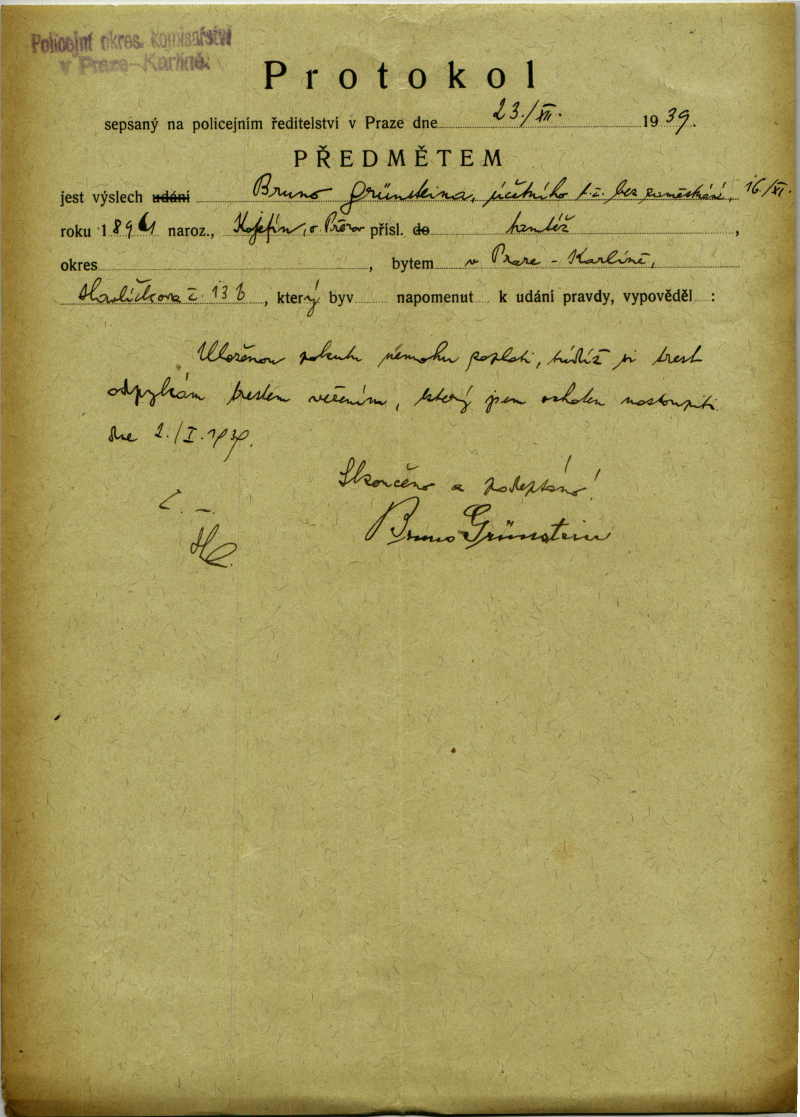 Policejní okres. komisařství
v Praze-Karlíně.
Protokol
sepsaný na policejním ředitelství v Praze dne 23./XII. 1939.
PŘEDMĚTEM
jest výslech udání Bruno Grünsteina, účetního t.č. bez zaměstnání, 16/XI.
roku 1891 naroz., Kojetín, o. Přerov přísl. do tamtéž,
okres , bytem v Praze-Karlíně,
Havlíčkova č. 13 b, který byv napomenut k udání pravdy, vypověděl :
Uloženou pokutu nemohu zaplatit, tudíž si trest
odpykám trestem vězením, který jsem ochoten nastoupiti
dne 2./I.
Skončeno a podepsáno!
Bruno Grünstein